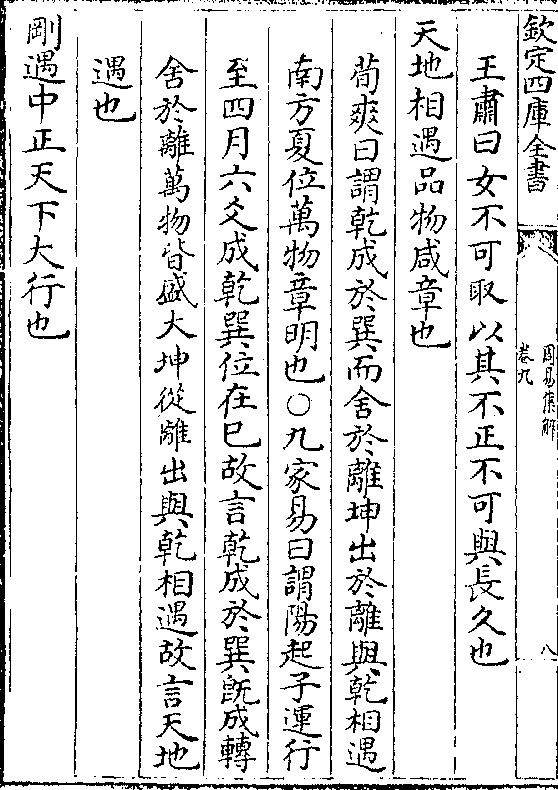 欽定四庫全書
周易集解
卷九
八
王肅曰女不可取以其不正不可與長久也
天地相遇品物咸章也
荀爽曰謂乾成於巽而舍於離坤出於離與乾相遇
南方夏位萬物章明也○九家易曰謂陽起子運行
至四月六爻成乾巽位在巳故言乾成於巽既成轉
舍於離萬物皆盛大坤從離出與乾相遇故言天地
遇也
剛遇中正天下大行也